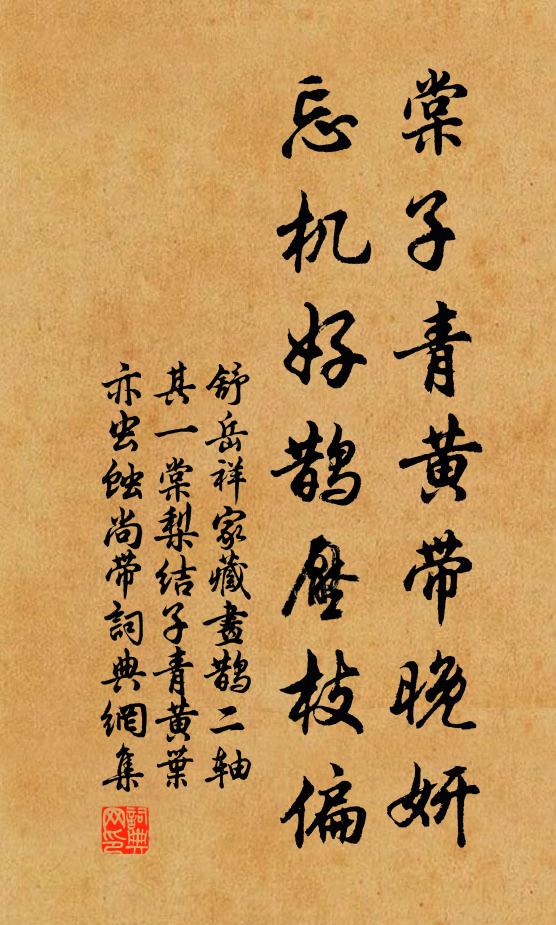 棠子青黄带晚妍
忘机好鹊压枝偏
舒岳祥家藏畫鹊二轴
其一棠梨结子青黄葉
亦虫蚀尚带詞典網集
詞典网印